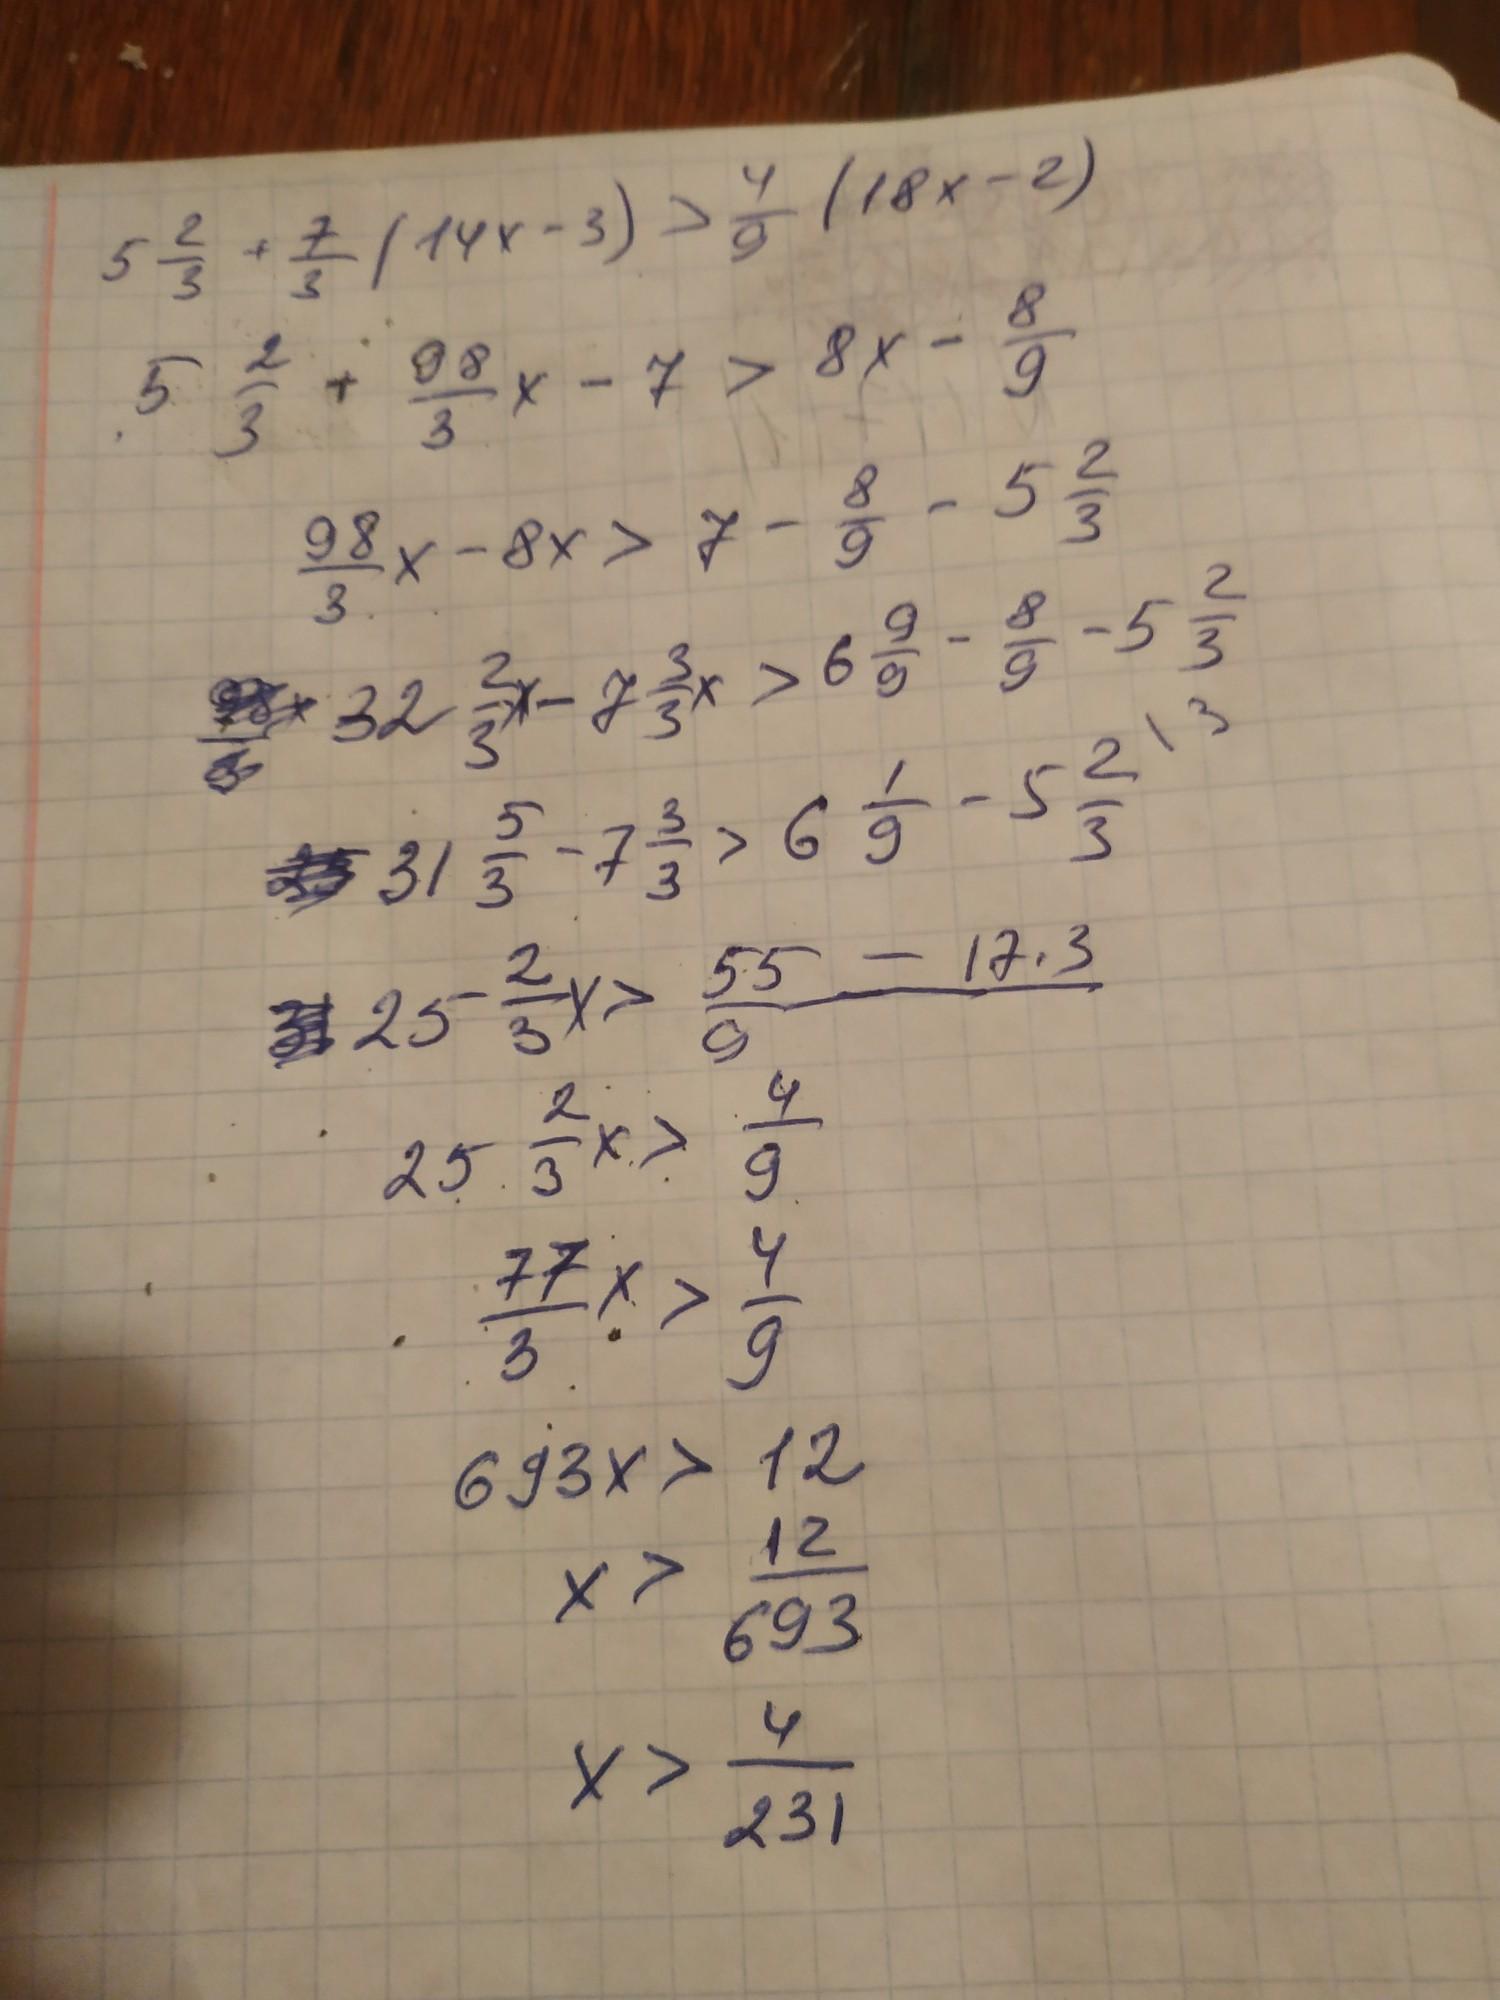 5 2/3 + 7/3 (14x - 3) > 4/9 (18x - 2)
5 2/3 + 98/3 x - 7 > 8x - 8/9
98/3 x - 8x > 7 - 8/9 - 5 2/3
32 2/3 x - 7 3/3 x > 6 9/9 - 8/9 - 5 2/3
31 5/3 - 7 3/3 > 6 1/9 - 5 2/3 \3
25 2/3 x > 55 - 17.3 / 9
25 2/3 x > 4/9
77/3 x > 4/9
693x > 12
x > 12/693
x > 4/231